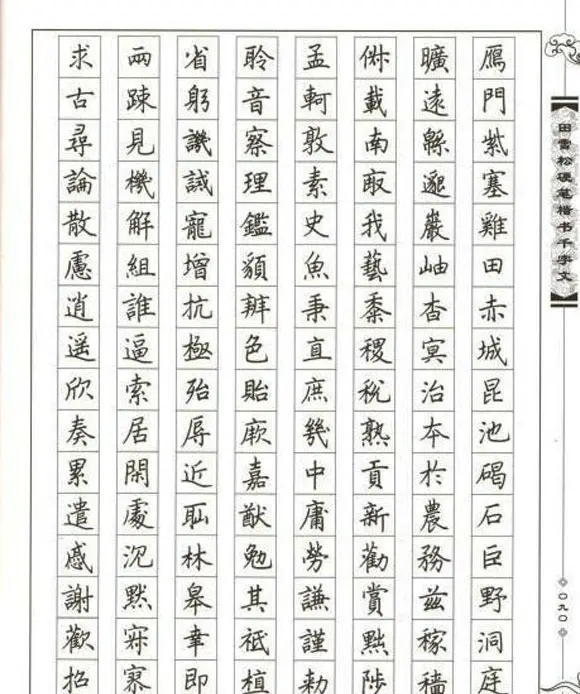 鴈門紫塞雞田赤城昆池碣石巨野洞庭
曠遠緜邈巖岫杳冥治本於農務茲稼穡
俶載南畝我藝黍稷稅熟貢新勸賞黜陟
孟軻敦素史魚秉直庶幾中庸勞謙謹勅
聆音察理鑑貌辨色貽厥嘉猷勉其祗植
省躬譏誡寵增抗極殆辱近耻林皋幸即
兩疎見機解組誰逼索居閑處沉默寂寥
求古尋論散慮逍遥欣奏累遣慼謝歡招
田雪松硬笔楷书千字文
〇九〇